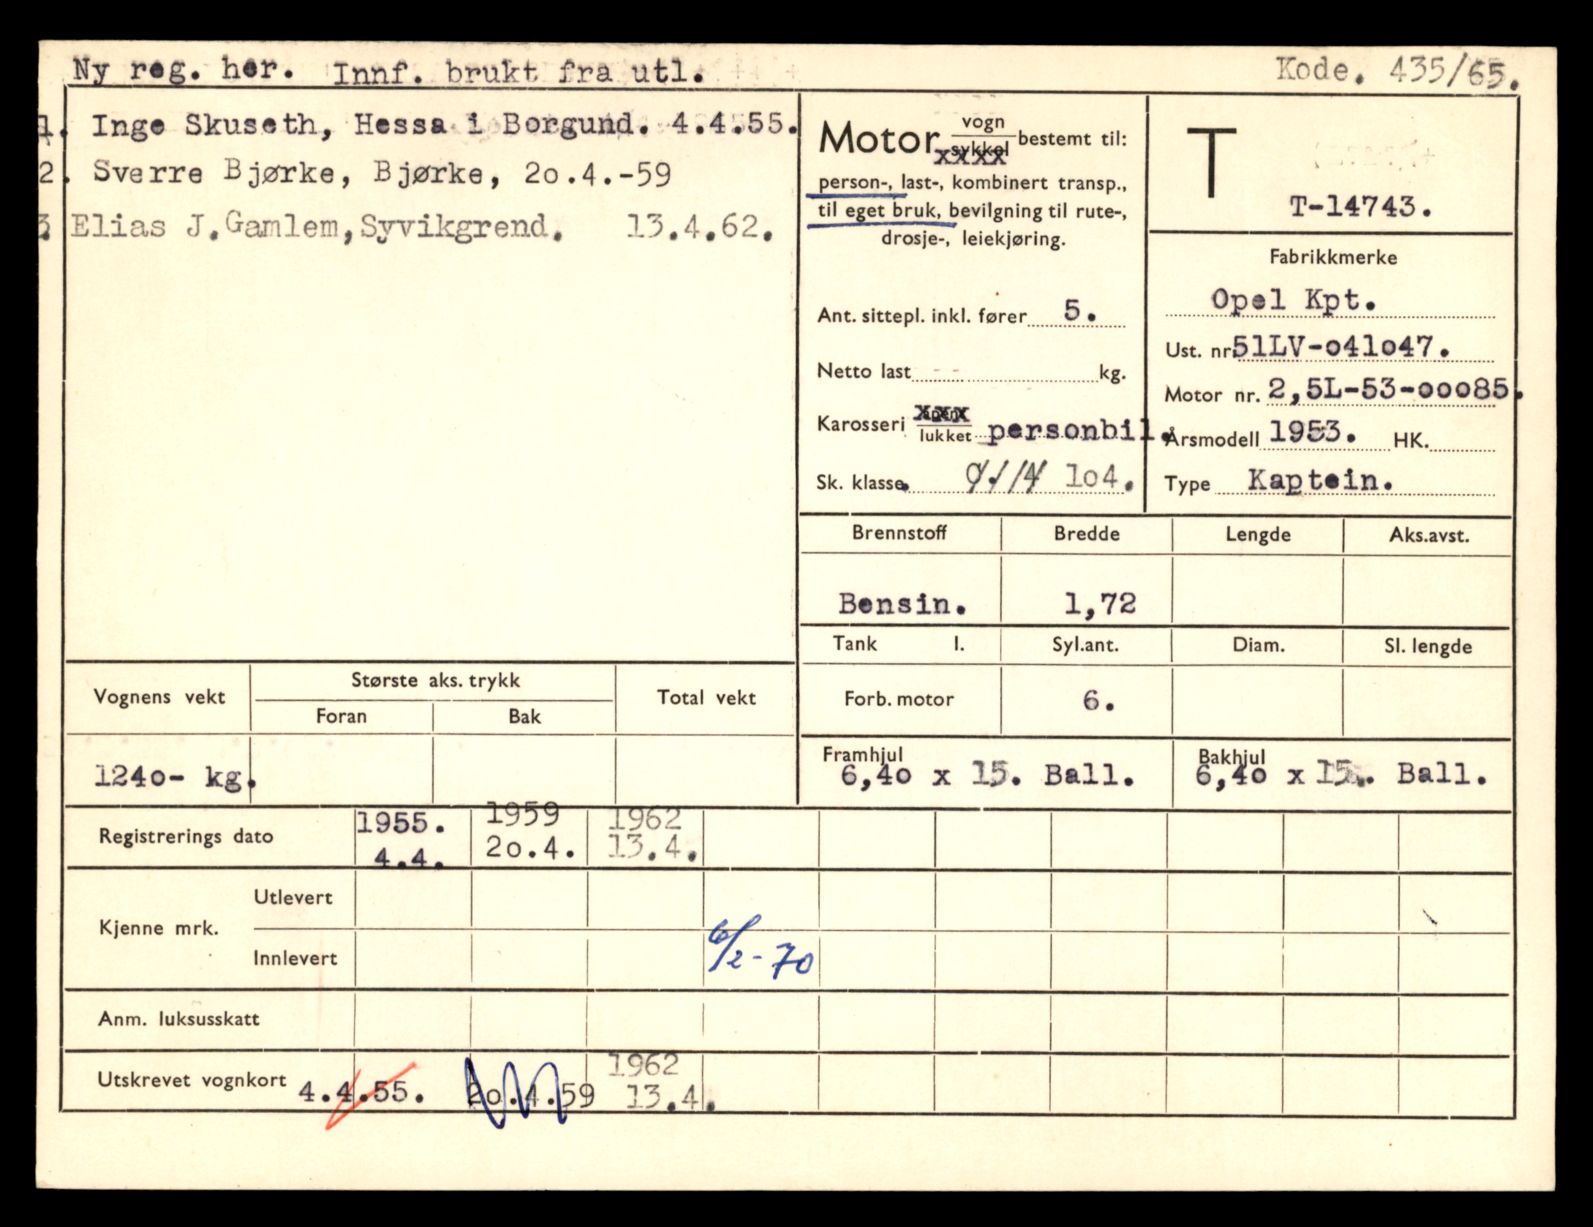 Ny reg. her. Innf. brukt fra utl. Kode. 435/65.
1. Inge Skuseth, Hessa i Borgund. 4.4.55.
2. Sverre Bjørke, Bjørke, 2o.4.-59
3. Elias J.Gamlem,Syvikgrend. 13.4.62.
Motor vogn
sykkel bestemt til:
person-, last-, kombinert transp.,
til eget bruk, bevilgning til rute-,
drosje-, leiekjøring.
Ant. sittepl. inkl. fører 5.
Netto last -- kg.
Karosseri xxx
lukket personbil.
Sk. klasse 104.
T
T-14743.
Fabrikkmerke
Opel Kpt.
Ust. nr. 51LV-o41o47.
Motor nr. 2,5L-53-ooo85.
Årsmodell 1953. HK.
Type Kaptein.
Brennstoff Bredde Lengde Aks.avst.
Bensin. 1,72
Tank l. Syl.ant. Diam. Sl. lengde
Forb. motor 6.
Framhjul Bakhjul
6,4o x 15. Ball. 6,4o x 15. Ball.
Vognens vekt Største aks. trykk Total vekt
Foran Bak
124o- kg.
Registrerings dato 1955. 1959 1962
4.4. 2o.4. 13.4.
Kjenne mrk. Utlevert
Innlevert 6/2-70
Anm. luksusskatt
Utskrevet vognkort 4.4.55. 2o.4.59 1962
13.4.